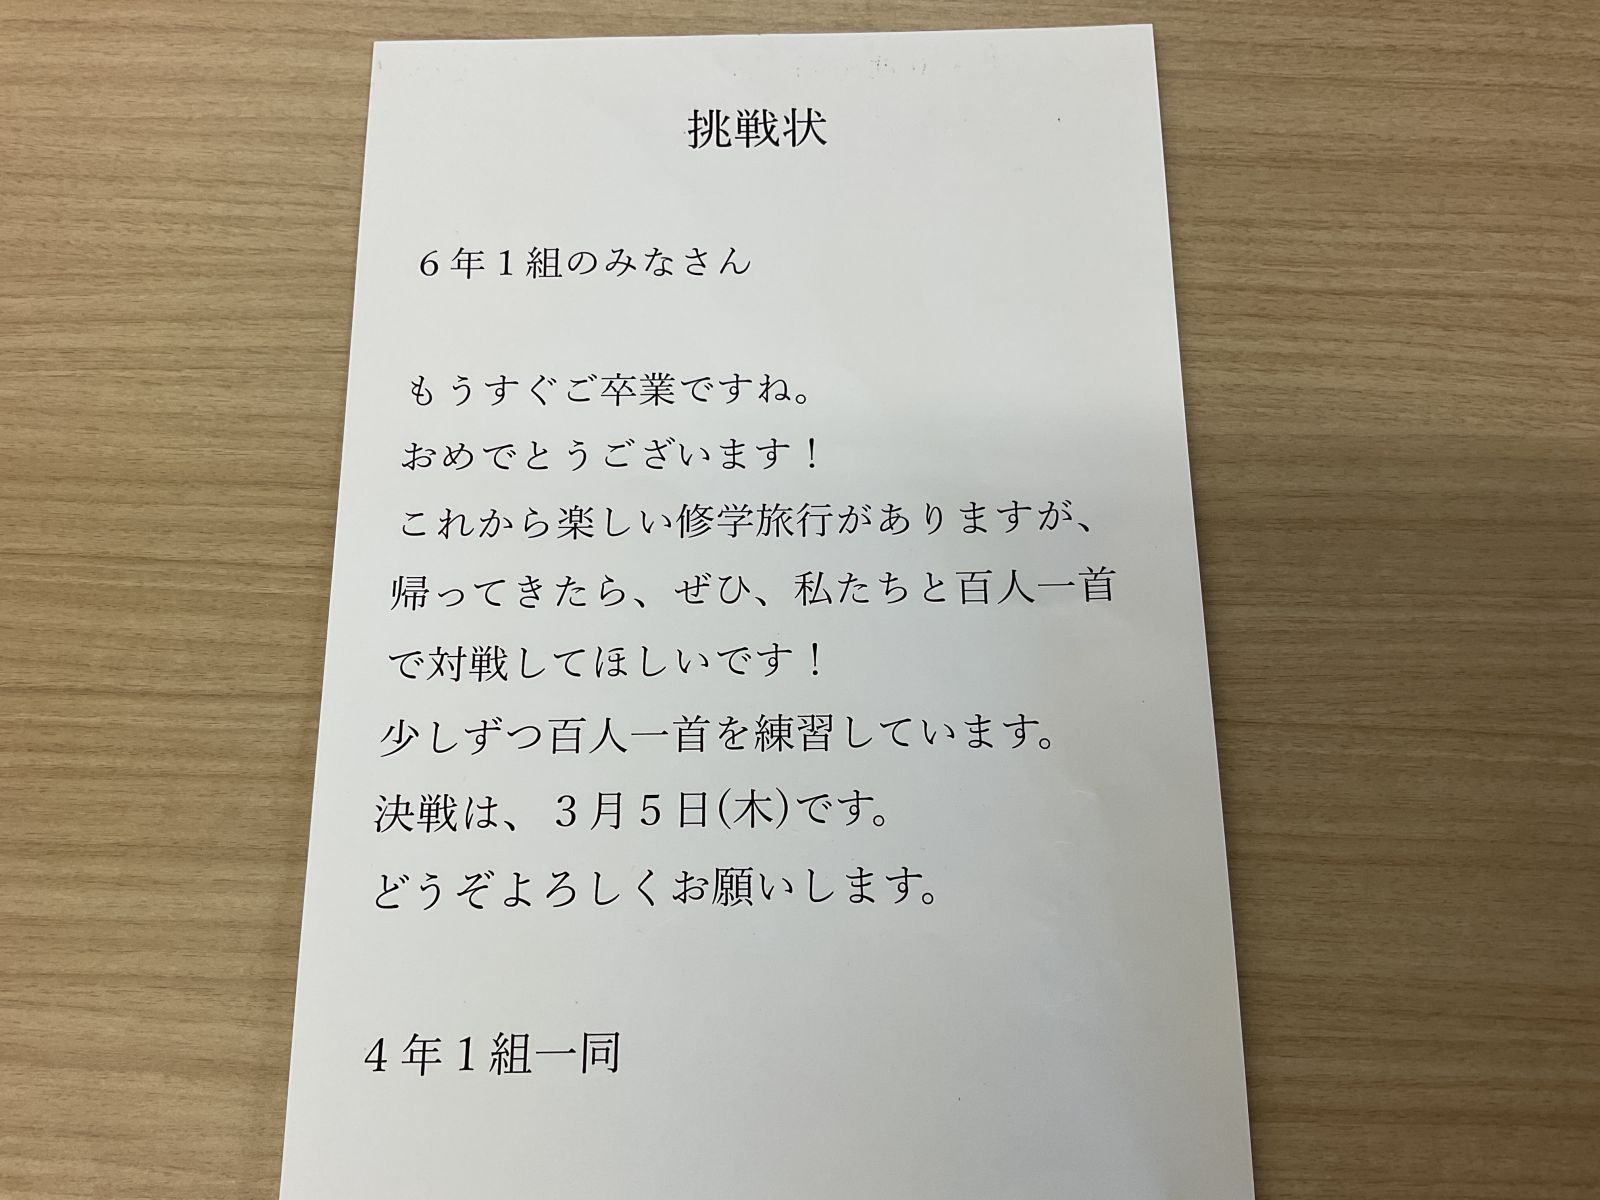 挑戦状
６年１組のみなさん
もうすぐご卒業ですね。
おめでとうございます！
これから楽しい修学旅行がありますが、
帰ってきたら、ぜひ、私たちと百人一首
で対戦してほしいです！
少しずつ百人一首を練習しています。
決戦は、３月５日(木)です。
どうぞよろしくお願いします。
４年１組一同